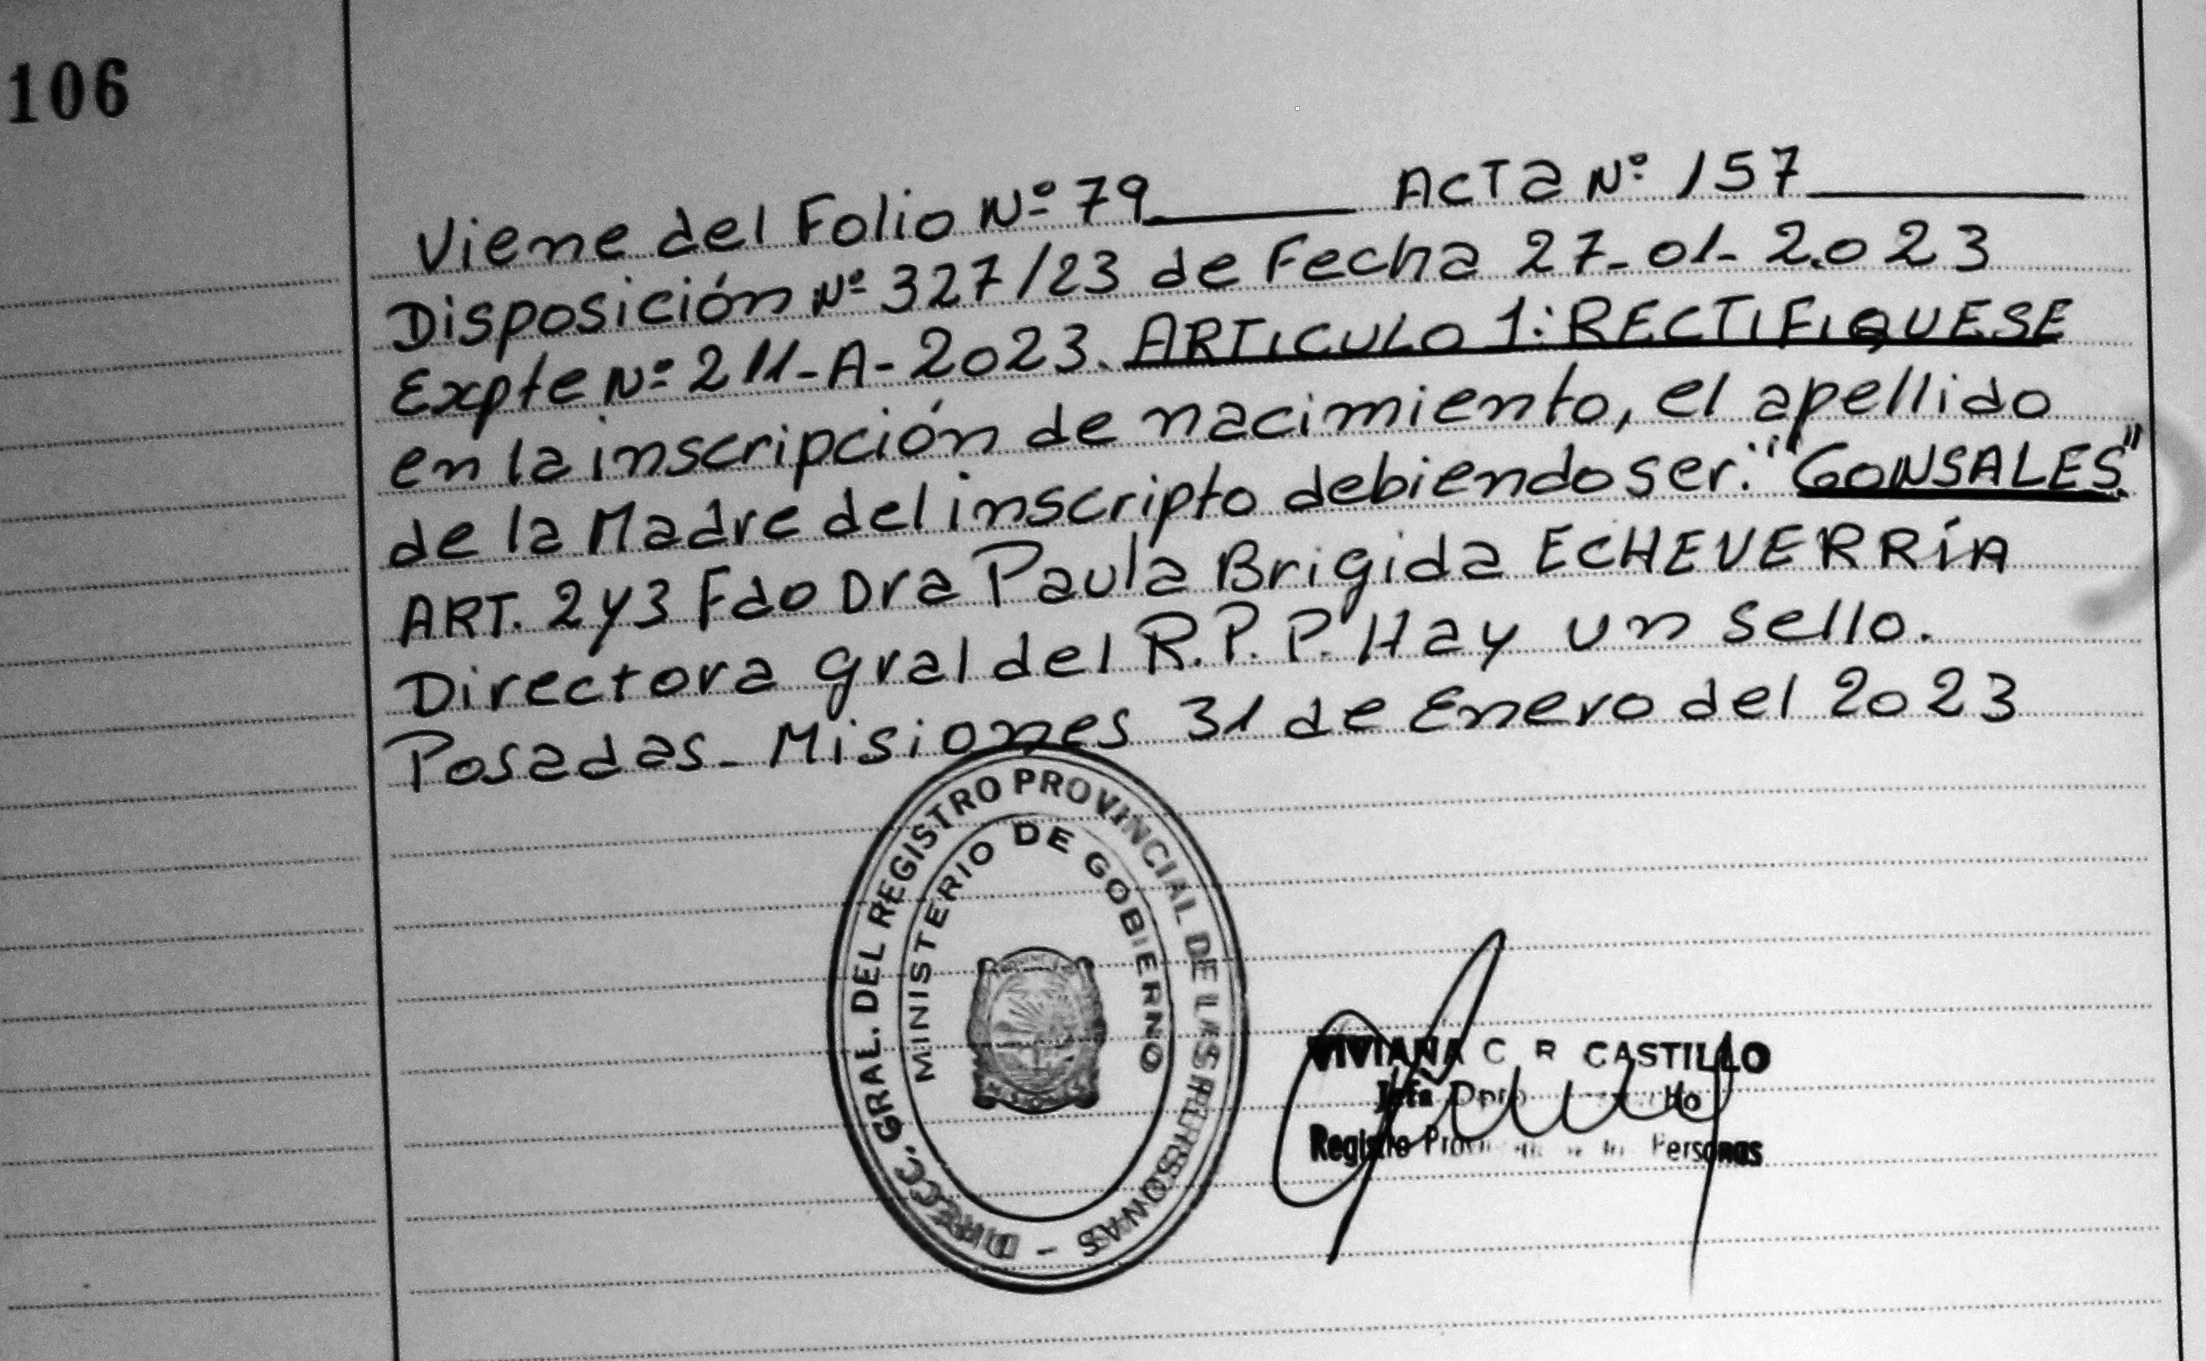 106
Viene del Folio Nº 79 ACTa Nº 157
Disposición Nº 327/23 de Fecha 27-01-2.023
Expte Nº 211-A-2023. ARTICULO 1: RECTIFIQUESE
en la inscripción de nacimiento, el apellido
de la Madre del inscripto debiendo ser: "GONSALES"
ART. 2 y 3 Fdo Dra Paula Brigida ECHEVERRÍA
Directora gral del R.P.P. Hay un sello.
Posadas - Misiones 31 de Enero del 2023
DIRECC. GRAL. DEL REGISTRO PROVINCIAL DE LAS PERSONAS -
MINISTERIO DE GOBIERNO
VIVIANA C R CASTILLO
Jefa Dpto
Registro Personas